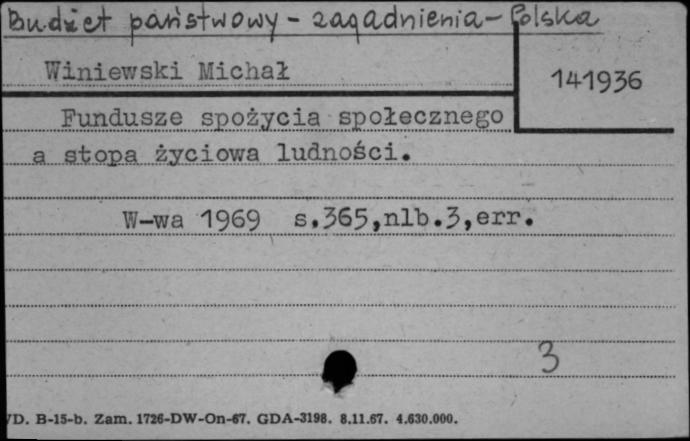 Budżet państwowy - zagadnienia - Polska
Winiewski Michał
141936
Fundusze spożycia społecznego
a stopa życiowa ludności.
W-wa 1969 s.365,nlb.3,err.
3
D. B-15-b. Zam. 1726-DW-On-67. GDA-3198. 8.11.67. 4.630.000.